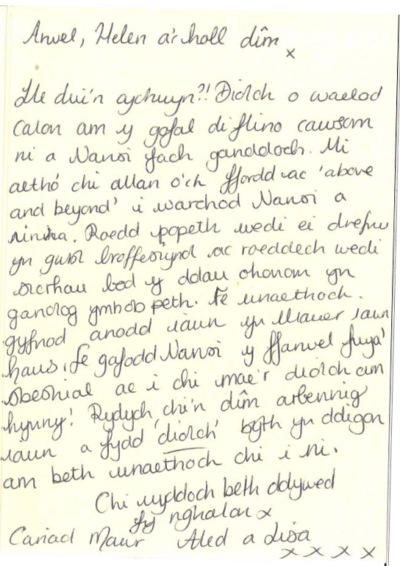 Arwel, Helen a'r holl dîm
x
Lle dwi'n cychwyn?! Diolch o waelod
calon am y gofal diflino cawsom
ni a Nansi fach ganddoch. Mi
aethó chi allan o'ch ffordd ac 'above
and beyond' i warchod Nansi a
ninna. Roedd popeth wedi ei drefnu
yn gwbl broffesiynol ac roeddech wedi
sicrhau bod y ddau ohonom yn
ganolog ymhob peth. Fe wnaethoch
gyfnod anodd iawn yn llawer iawn
haws, fe gafodd Nansi y ffarwel fwya'
sbeshial ac i chi mae'r diolch am
hynny! Rydych chi'n dîm arbennig
iawn a fydd 'diolch' byth yn ddigon
am beth wnaethoch chi i ni.
Chi wyddoch beth ddywed
fy nghalon x
Cariad Mawr Aled a Lisa
x x x x